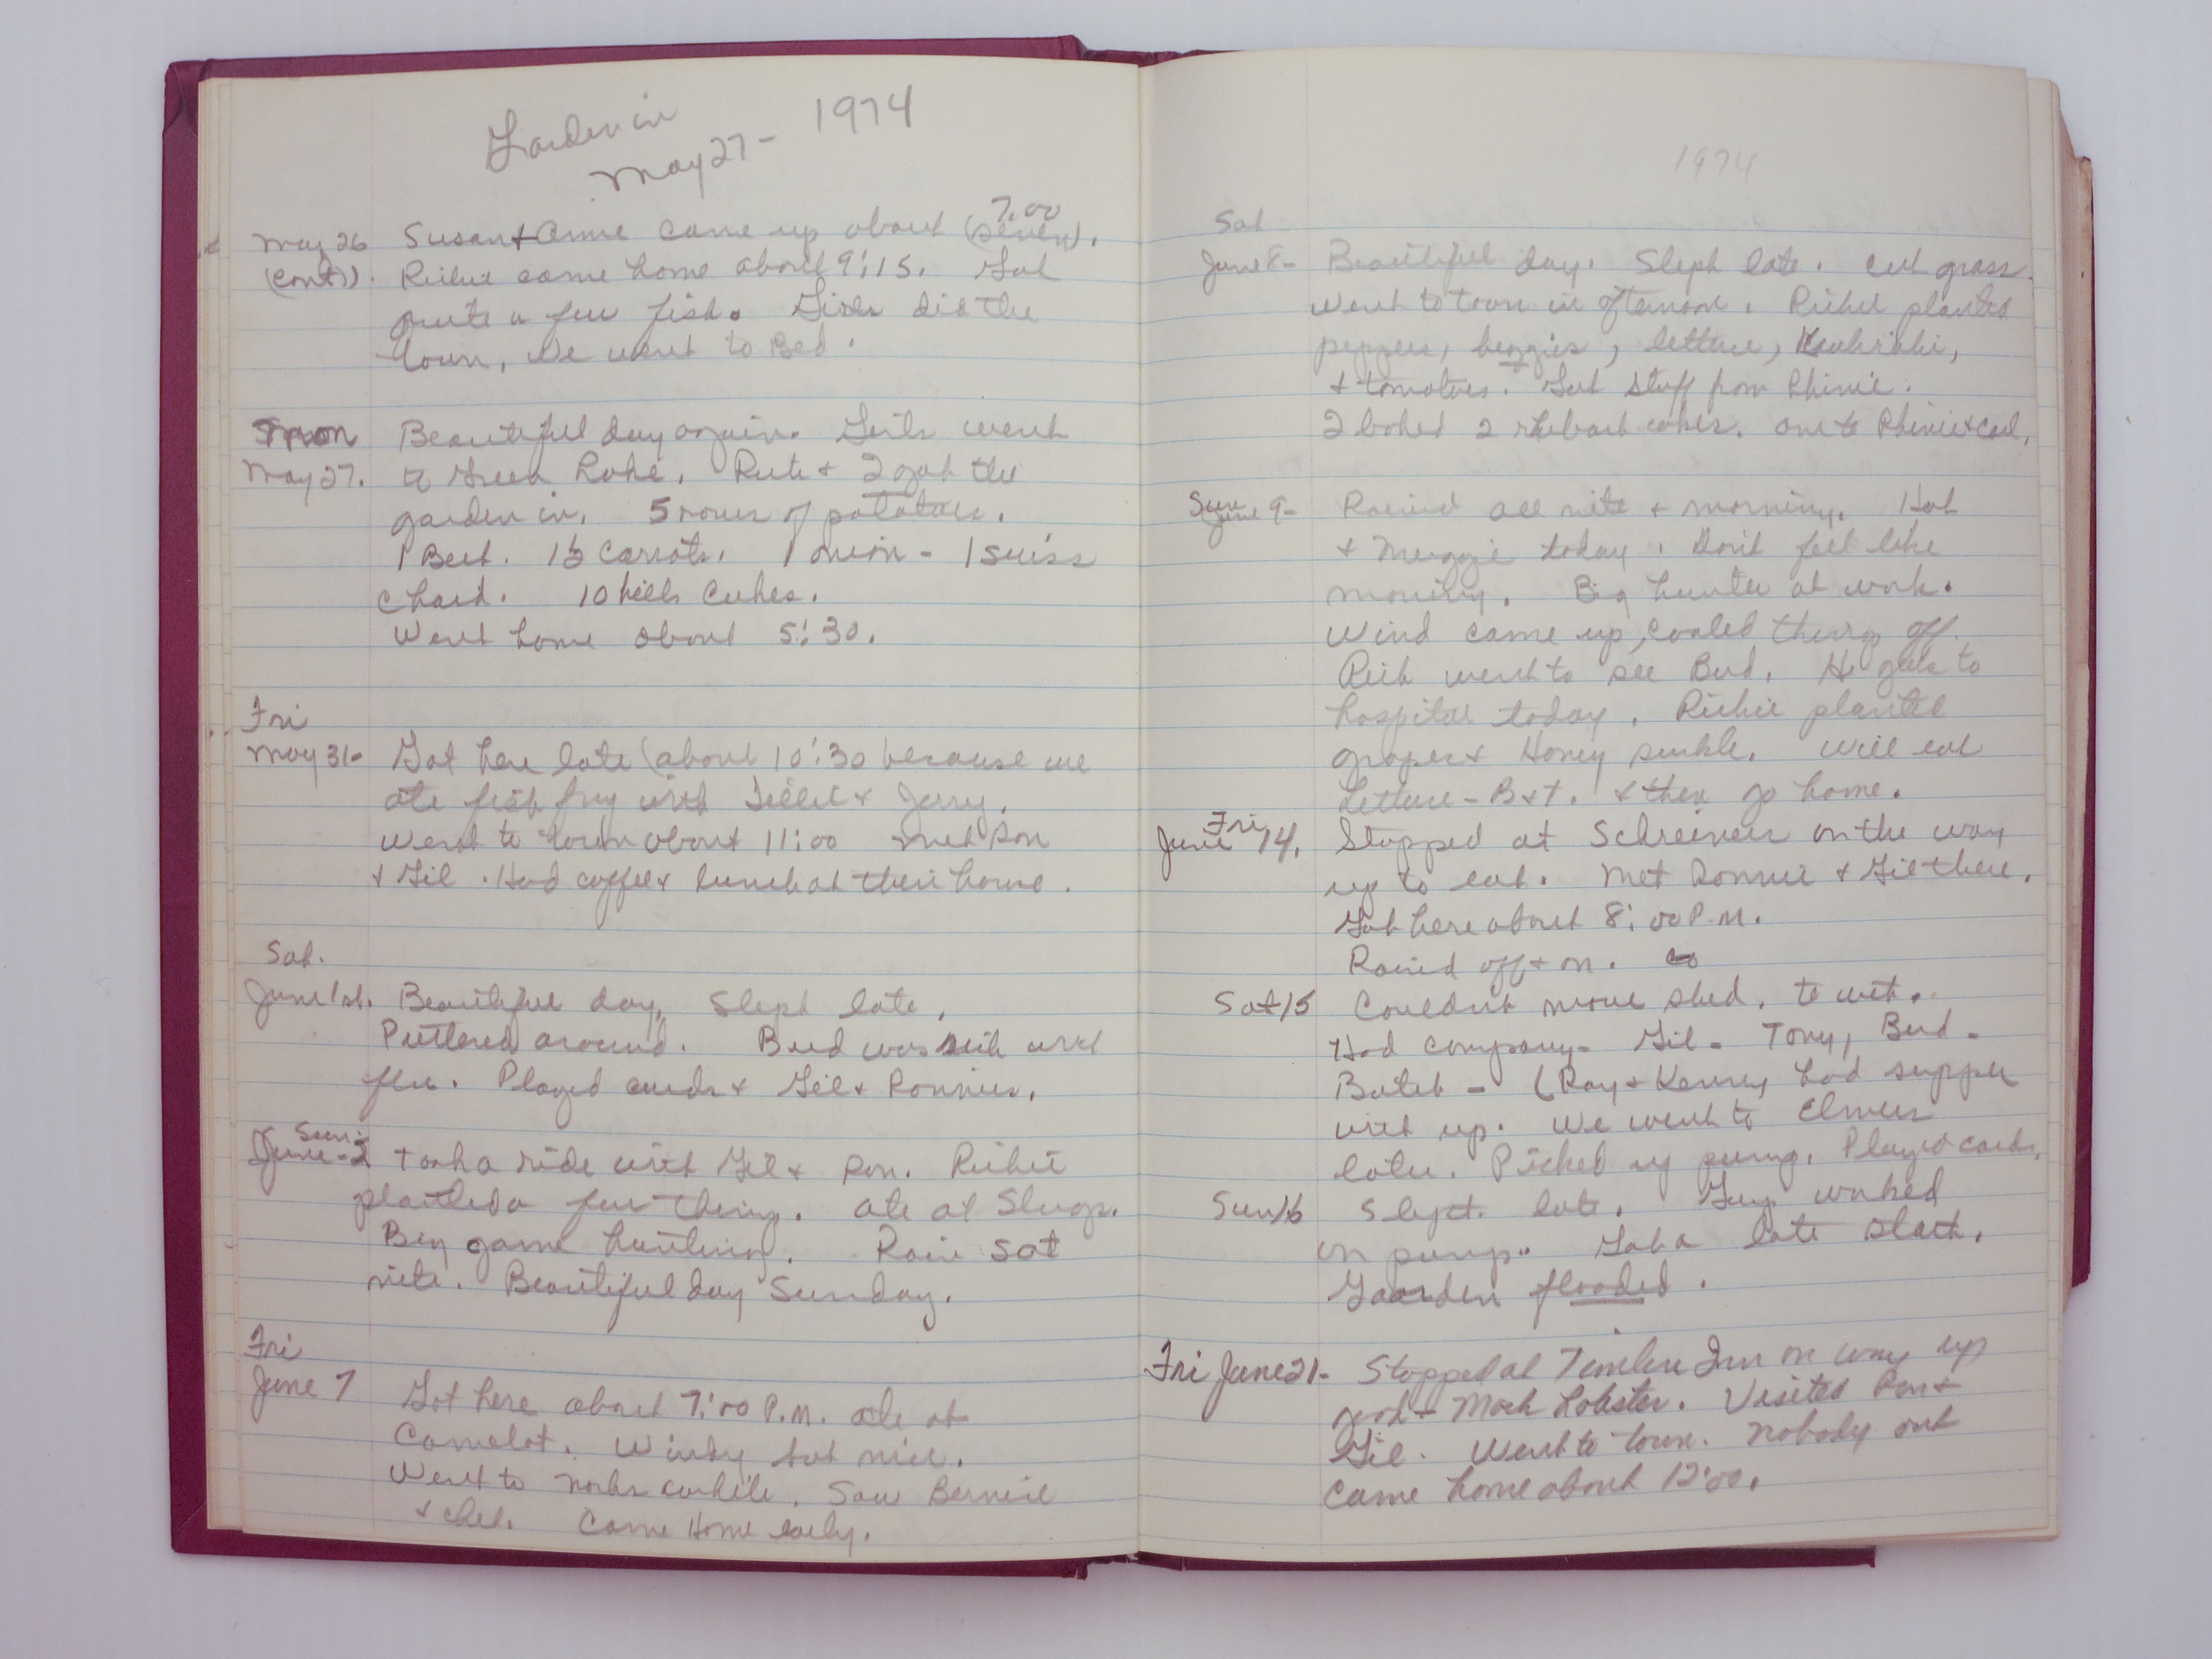 Garden in
May 27 - 1974
7:00
May 26 Susan + Anne came up about (seven).
(cont). Richie came home about 9:15. Got
quite a few fish. Girls did the
town, we went to Bed.
Mon Beautiful day again. Girls went
May 27. to Green Lake. Rich + I got the
garden in. 5 rows of potatoes.
1 Beet. 1½ Carrots. 1 onion - 1 Swiss
Chard. 10 hills Cukes.
Went home about 5:30.
Fri
May 31- Got here late (about 10:30 because we
ate fish fry with & Jerry.
Went to town about 11:00 met Ron
+ Gil. Had coffee & lunch at their house.
Sat.
June 1st. Beautiful day, Slept late,
Puttered around. Bud was sick with
flu. Played cards & Gil & Ronnies.
Sun.
June-2 took a ride with Gil & Ron. Richie
planted a few things. ate at Slugs.
Big game hunting. Rain Sat
nite. Beautiful day Sunday.
Fri
June 7 Got here about 7:00 P.M. ate at
Camelot. Windy but nice.
Went to awhile. Saw Bernice
+ Chet. Came Home early.
1974
Sat
June 8- Beautiful day. Slept late. cut grass.
Went to town in afternoon. Richie planted
peppers, beggies, lettuce,
+ tomatoes. Got stuff from Phinie.
I baked 2 rhubarb cakes. one to Phinie & Carl.
Sun
June 9- Rained all nite + morning. Hot
+ Muggie today. Don't feel like
moving. Big hunter at work.
Wind came up, cooled things off.
Rich went to see Bud. He goes to
hospital today. Richie planted
grapes & Honey suckle. Will eat
Lettuce - B & T. & then go home.
Fri
June 14. Stopped at Schreiners on the way
up to eat. Met Ronnie & Gil there.
Got here about 8:00 P.M.
Rained off & on.
Sat 15 Couldnt move shed. to wet.
Had company - Gil - Tony, Bud -
Butch - (Ray & Kenny had supper
with up. We went to Elmers
later. Picked up pump. Played cards.
Sun 16 Slept late. Guys worked
on pump. Got a late start.
Gaarden flooded.
Fri June 21- Stopped at Timber Inn on way up
good - Mock Lobster. Visited Ron &
Gil. Went to town. Nobody out
Came home about 12:00.